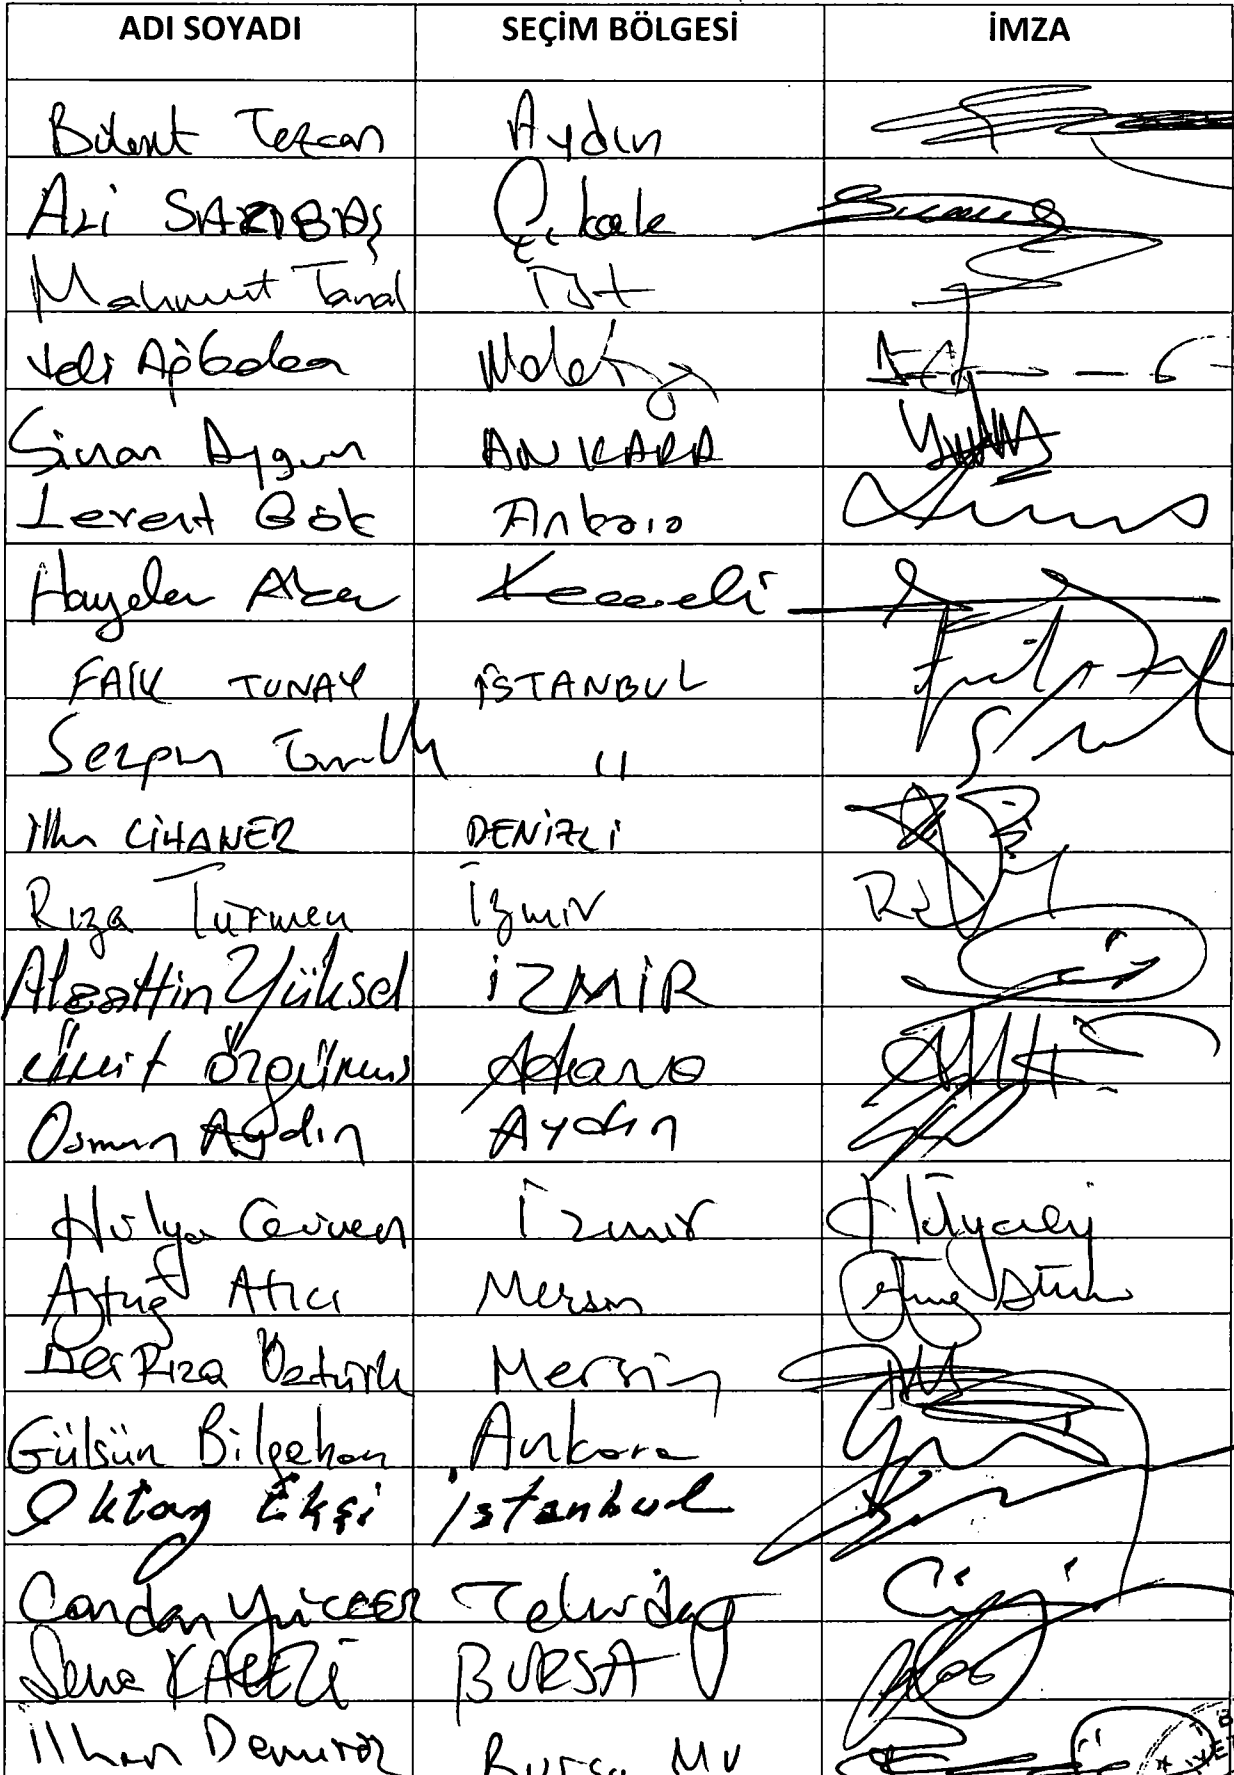 ADI SOYADI SEÇİM BÖLGESİ İMZA
Bülent Tezcan Aydın
Ali SARIBAŞ Ç.kale
Mahmut Tanal İst
Veli Ağbaba Malatya
Sinan Aygun ANKARA
Levent Gök Ankara
Haydar Akar Kocaeli
FAİK TUNAY İSTANBUL
Sezgin Tanrıkulu "
İlhan CİHANER DENİZLİ
Rıza Türmen İzmir
Alaattin Yüksel İZMİR
Ümit Özgümüş Adana
Osman Aydın Aydın
Hülya Güven İzmir
Aytuğ Atıcı Mersin
Ali Rıza Öztürk Mersin
Gülsün Bilgehan Ankara
Oktay Ekşi İstanbul
Candan YÜCEER Tekirdağ
Sena KALELİ BURSA
İlhan Demiröz Bursa MV